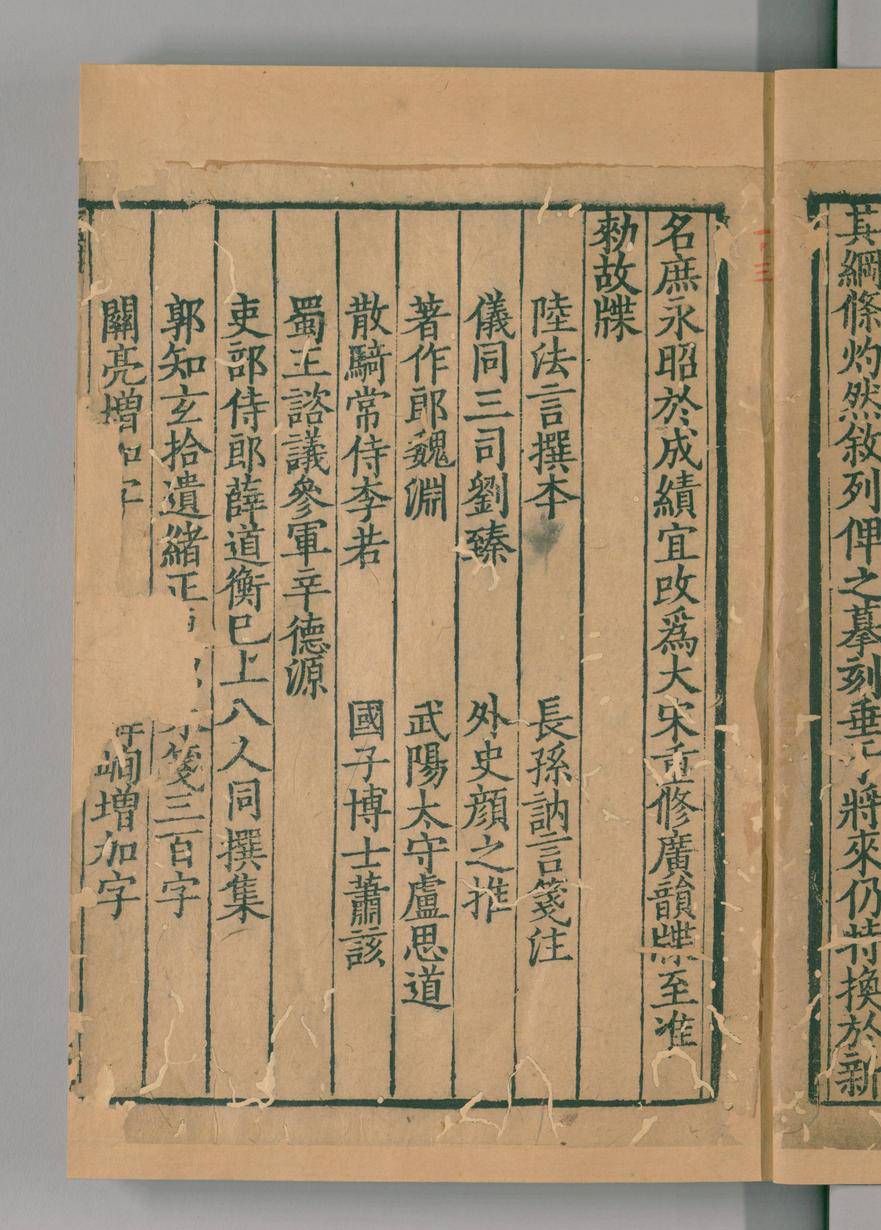 其綱條灼然敘列俾之摹刻垂將來仍特換於新
名庶永昭於成績宜改爲大宋重修廣韻牒至准
勑故牒
陸法言撰本 長孫訥言箋注
儀同三司劉臻 外史顔之推
著作郎魏淵 武陽太守盧思道
散騎常侍李若 國子博士蕭該
蜀王諮議參軍辛德源
吏部侍郎薛道衡已上八人同撰集
郭知玄拾遺緒正 箋三百字
關亮增加字 峋增加字